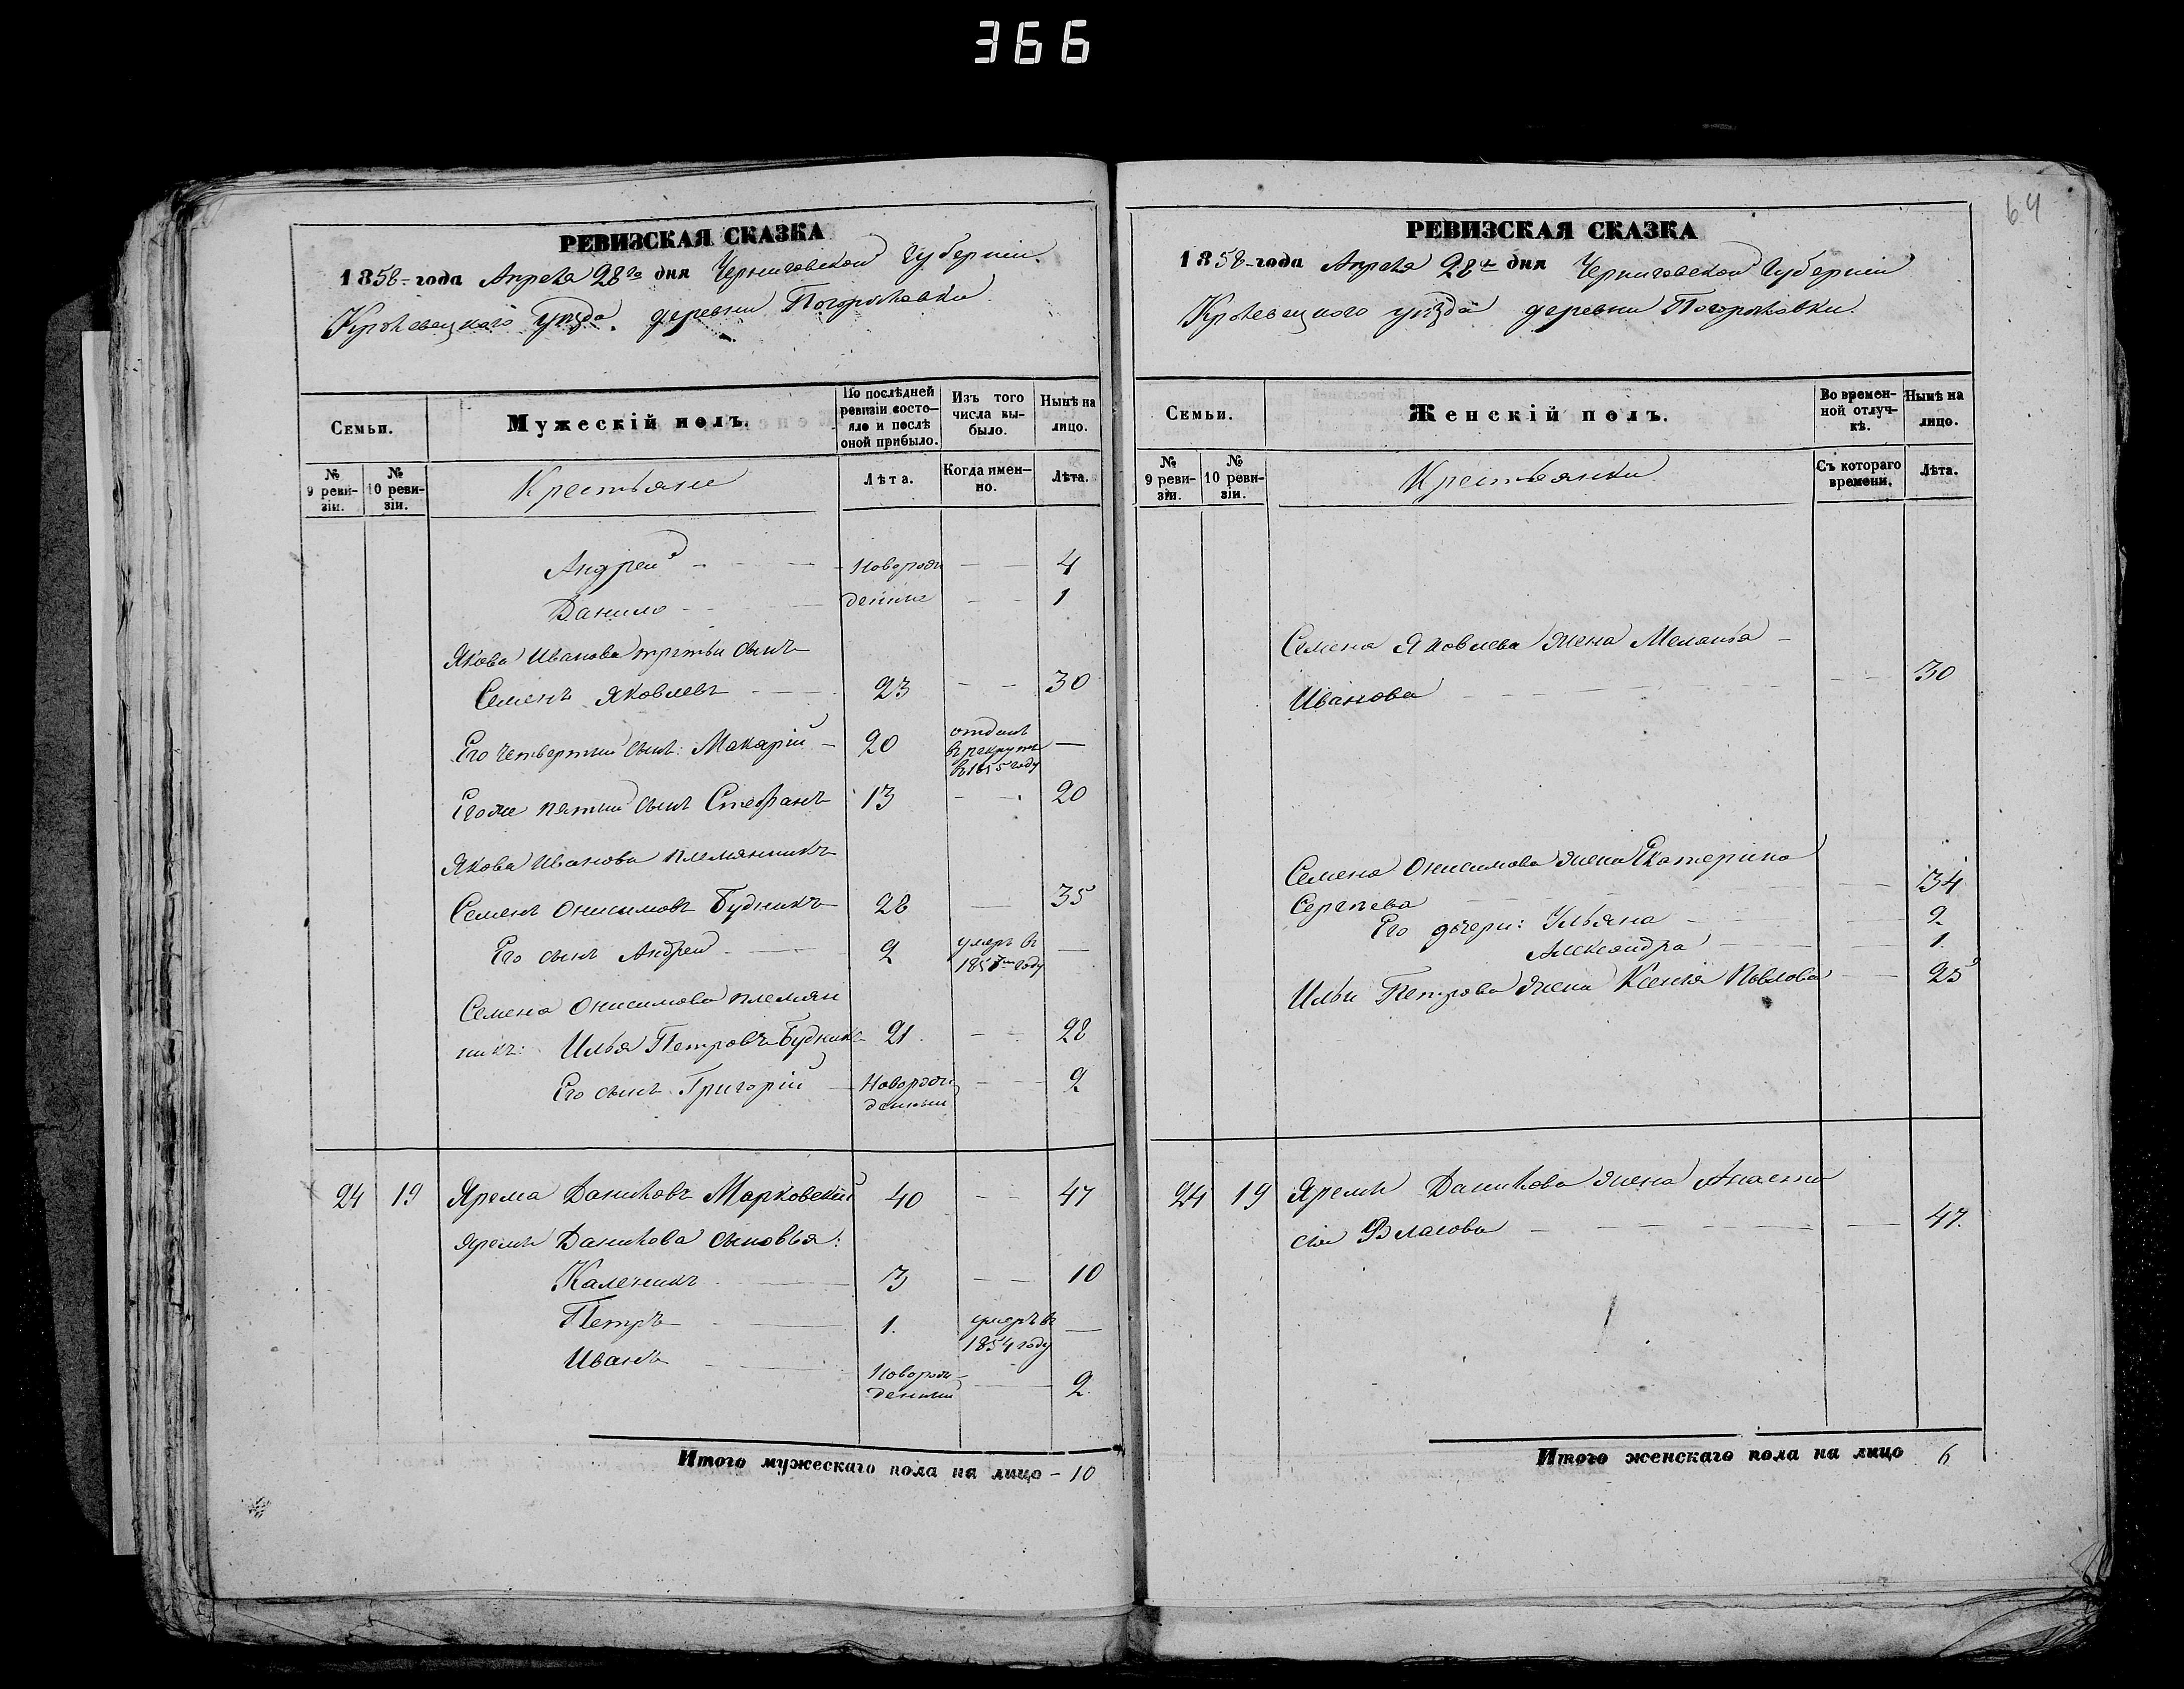 366
64
РЕВИЗСКАЯ СКАЗКА
1858-года Апреля 28го дня Черниговской Губернии.
Кролевецкого уезда. деревни Погорѣловки.
Семьи.
Мужескій полъ.
По послѣдней ревизіи состояло и послѣ оной прибыло.
Изъ того числа выбыло.
Нынѣ на лицо.
№ 9 ревизіи.
№ 10 ревизіи.
Крестьяне
Лѣта.
Когда именно.
Лѣта.
Андрей - Новорож - 4
Данило - денные - 1
Якова Иванова третьи сынъ
Семенъ Яковлевъ - 23 - 30
Его четвертый сынъ: Макарій - 20 отданъ в рекруты в 1855 году —
Егоже пятый сынъ Стефанъ 13 - 20
Якова Иванова племянникъ
Семенъ Онисимовъ Будникъ 28 — 35
Его сынъ Андрей - 2 умеръ в 1857м году —
Семена Онисимова племян
никъ: Илья Петровъ Будникъ 21. - 28
Его сынъ Григорій - Новорож денный - 2
24 19 Ярема Даниловъ Марковскій 40 - 47
Яремы Данилова сыновья:
Каленикъ - 3 - 10
Петръ - 1. умеръ в 1854 году —
Иванъ - Новорож-денный - 2.
Итого мужескаго пола на лицо - 10
РЕВИЗСКАЯ СКАЗКА
1858-года Апреля 28го дня Черниговской Губернии
Кролевецкого уезда деревни Погорѣловки.
Семьи.
Женскій полъ.
Во временной отлучкѣ.
Нынѣ на лицо.
№ 9 ревизіи.
№ 10 ревизіи.
Крестьянки
Съ котораго времени.
Лѣта.
Семена Яковлева жена Меланья -
Иванова - 30
Семена Онисимова жена Екатерина
Сергѣева - 34
Его дочери: Ульяна - 2
Александра - 1.
Ильи Петрова жена Ксенія Павлова - 25
24 19 Яремы Данилова жена Анаста
сія Власова - 47.
Итого женскаго пола на лицо 6